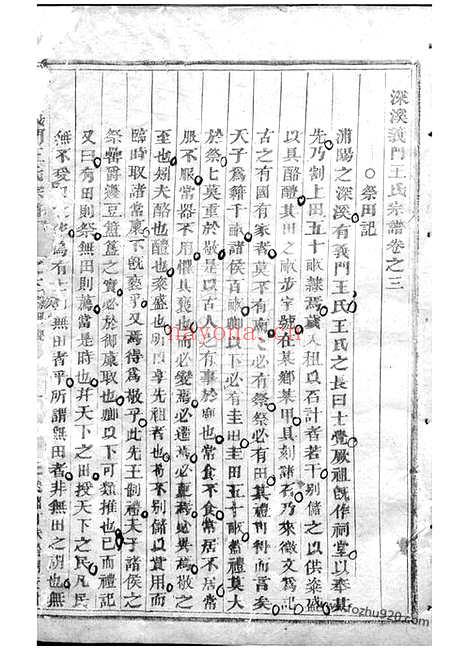 深溪義門王氏宗譜卷之三
○祭田記
浦陽之深溪有義門王氏王氏之長曰士覺厥祖旣作祠堂以奉其
先乃割上田五十畝隸焉歲入租以石計者若干別儲之以供粢盛
以具酪醴其田之畝步字號在某鄉某甲具刻諸石乃來徵文爲記
古之有國有家者莫不有廟必有祭祭必有田其禮可得而言矣
天子爲籍千畝諸侯百畝以下必有圭田圭田五十畝蓋禮莫大
於祭莫重於敬是以古人有事於廟也常食不食常居不居
服不服常器不用懼其褻也而必變焉必遷焉必異焉敬之
至也矧夫酪也醴也粢盛也所以享先祖者也而不別儲以實用而
臨時取諸常廩下旣褻乎又焉得爲敬乎此先王制禮天子諸侯之
祭罍爵邊豆簠簋之實必於御廩取也卿以下可類推也已而禮記
又曰有田則祭無田則薦當是時也井天下之田授天下之民凡民
無不受 爲有 無田者乎所謂無田者非無田之謂也無
nayona.cn
www.fozhu920.com